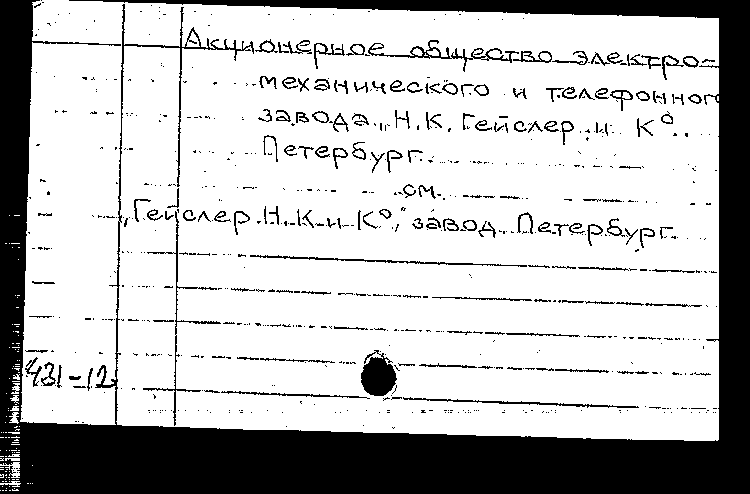 Акционерное общество электро-
механического и телефонног
завода „Н.К. Гейслер и К°.
Петербург.
см.
„Гейслер Н.К и К°," завод Петербург.
431-12